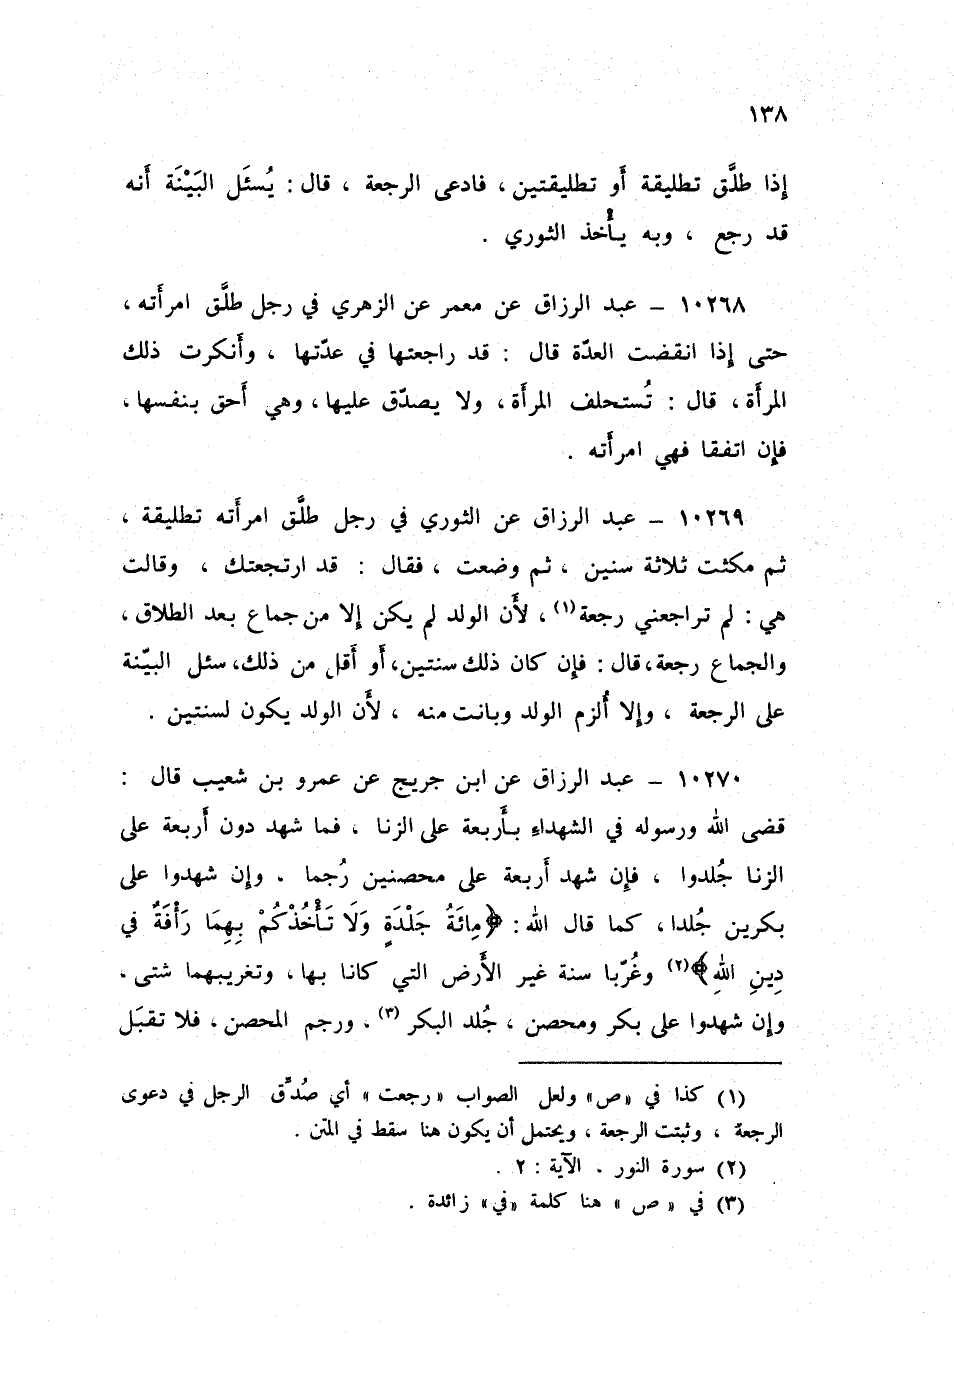 ١٣٨
إذا طلَّق تطليقة أو تطليقتين ، فادعى الرجعة ، قال : يُسئَل البَيْنَة أنه
قد رجع ، وبه يأخذ الثوري .
١٠٢٦٨ – عبد الرزاق عن معمر عن الزهري في رجل طلَّق امرأته ،
حتى إذا انقضت العدّة قال : قد راجعتها في عدّتها ، وأنكرت ذلك
المرأة ، قال : تُستحلف المرأة ، ولا يصدّق عليها ، وهي أحق بنفسها ،
فإن اتفقا فهي امرأته .
١٠٢٦٩ – عبد الرزاق عن الثوري في رجل طلَّق امرأته تطليقة ،
ثم مكثت ثلاثة سنين ، ثم وضعت ، فقال : قد ارتجعتك ، وقالت
هي : لم تراجعني رجعة (١) ، لأن الولد لم يكن إلا من جماع بعد الطلاق ،
والجماع رجعة ، قال : فإن كان ذلك سنتين ، أو أقل من ذلك ، سئل البيّنة
على الرجعة ، وإلا أُلزم الولد وبانت منه ، لأن الولد يكون لسنتين .
١٠٢٧٠ – عبد الرزاق عن ابن جريج عن عمرو بن شعيب قال :
قضى الله ورسوله في الشهداء بأربعة على الزنا ، فما شهد دون أربعة على
الزنا جُلدوا ، فإن شهد أربعة على محصنين رُجما . وإن شهدوا على
بكرين جُلدا ، كما قال الله : ﴿مِائَةُ جَلْدَةٍ وَلَا تَأْخُذْكُمْ بِهِمَا رَأْفَةٌ فِي
دِينِ اللهِ﴾ (٢) وغُرّبا سنة غير الأرض التي كانا بها ، وتغريبهما شتى .
وإن شهدوا على بكر ومحصن ، جُلد البكر (٣) ، ورجم المحصن ، فلا تقبَل
(١) كذا في «ص» ولعل الصواب «رجعت» أي صُدِّق الرجل في دعوى
الرجعة ، وثبتت الرجعة ، ويحتمل أن يكون هنا سقط في المتن .
(٢) سورة النور . الآية : ٢ .
(٣) في «ص» هنا كلمة «في» زائدة .